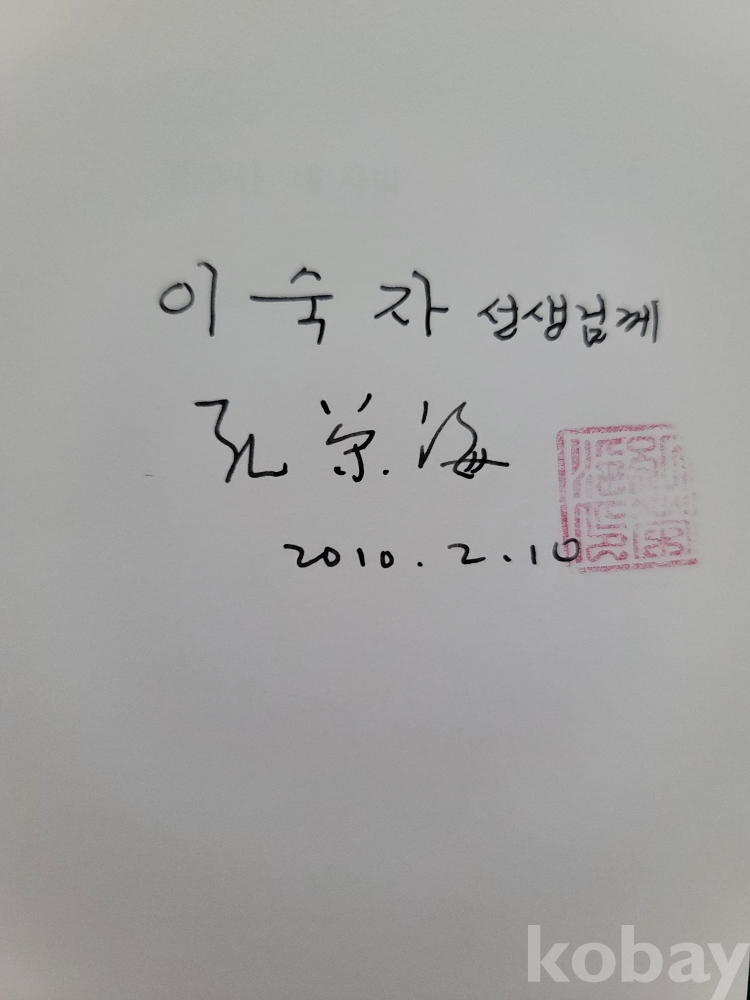 이 숙 자 선생님께
孔 榮 海
2010. 2. 10
kobay